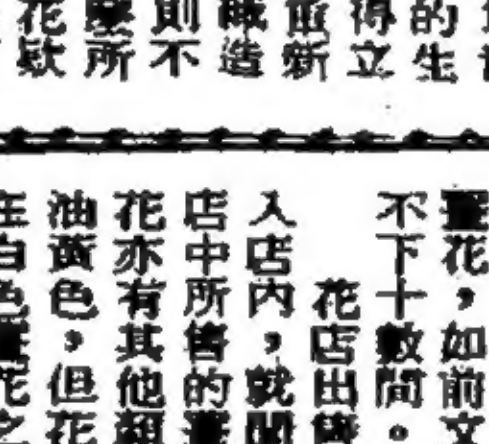 的生
得立
新
造
則不
所
花欵
薑花，如前文
不下十數間。
花店出
入店內，就聞
店中所售的薑
花亦有其他顏
油黃色，但花
在白色薑花之